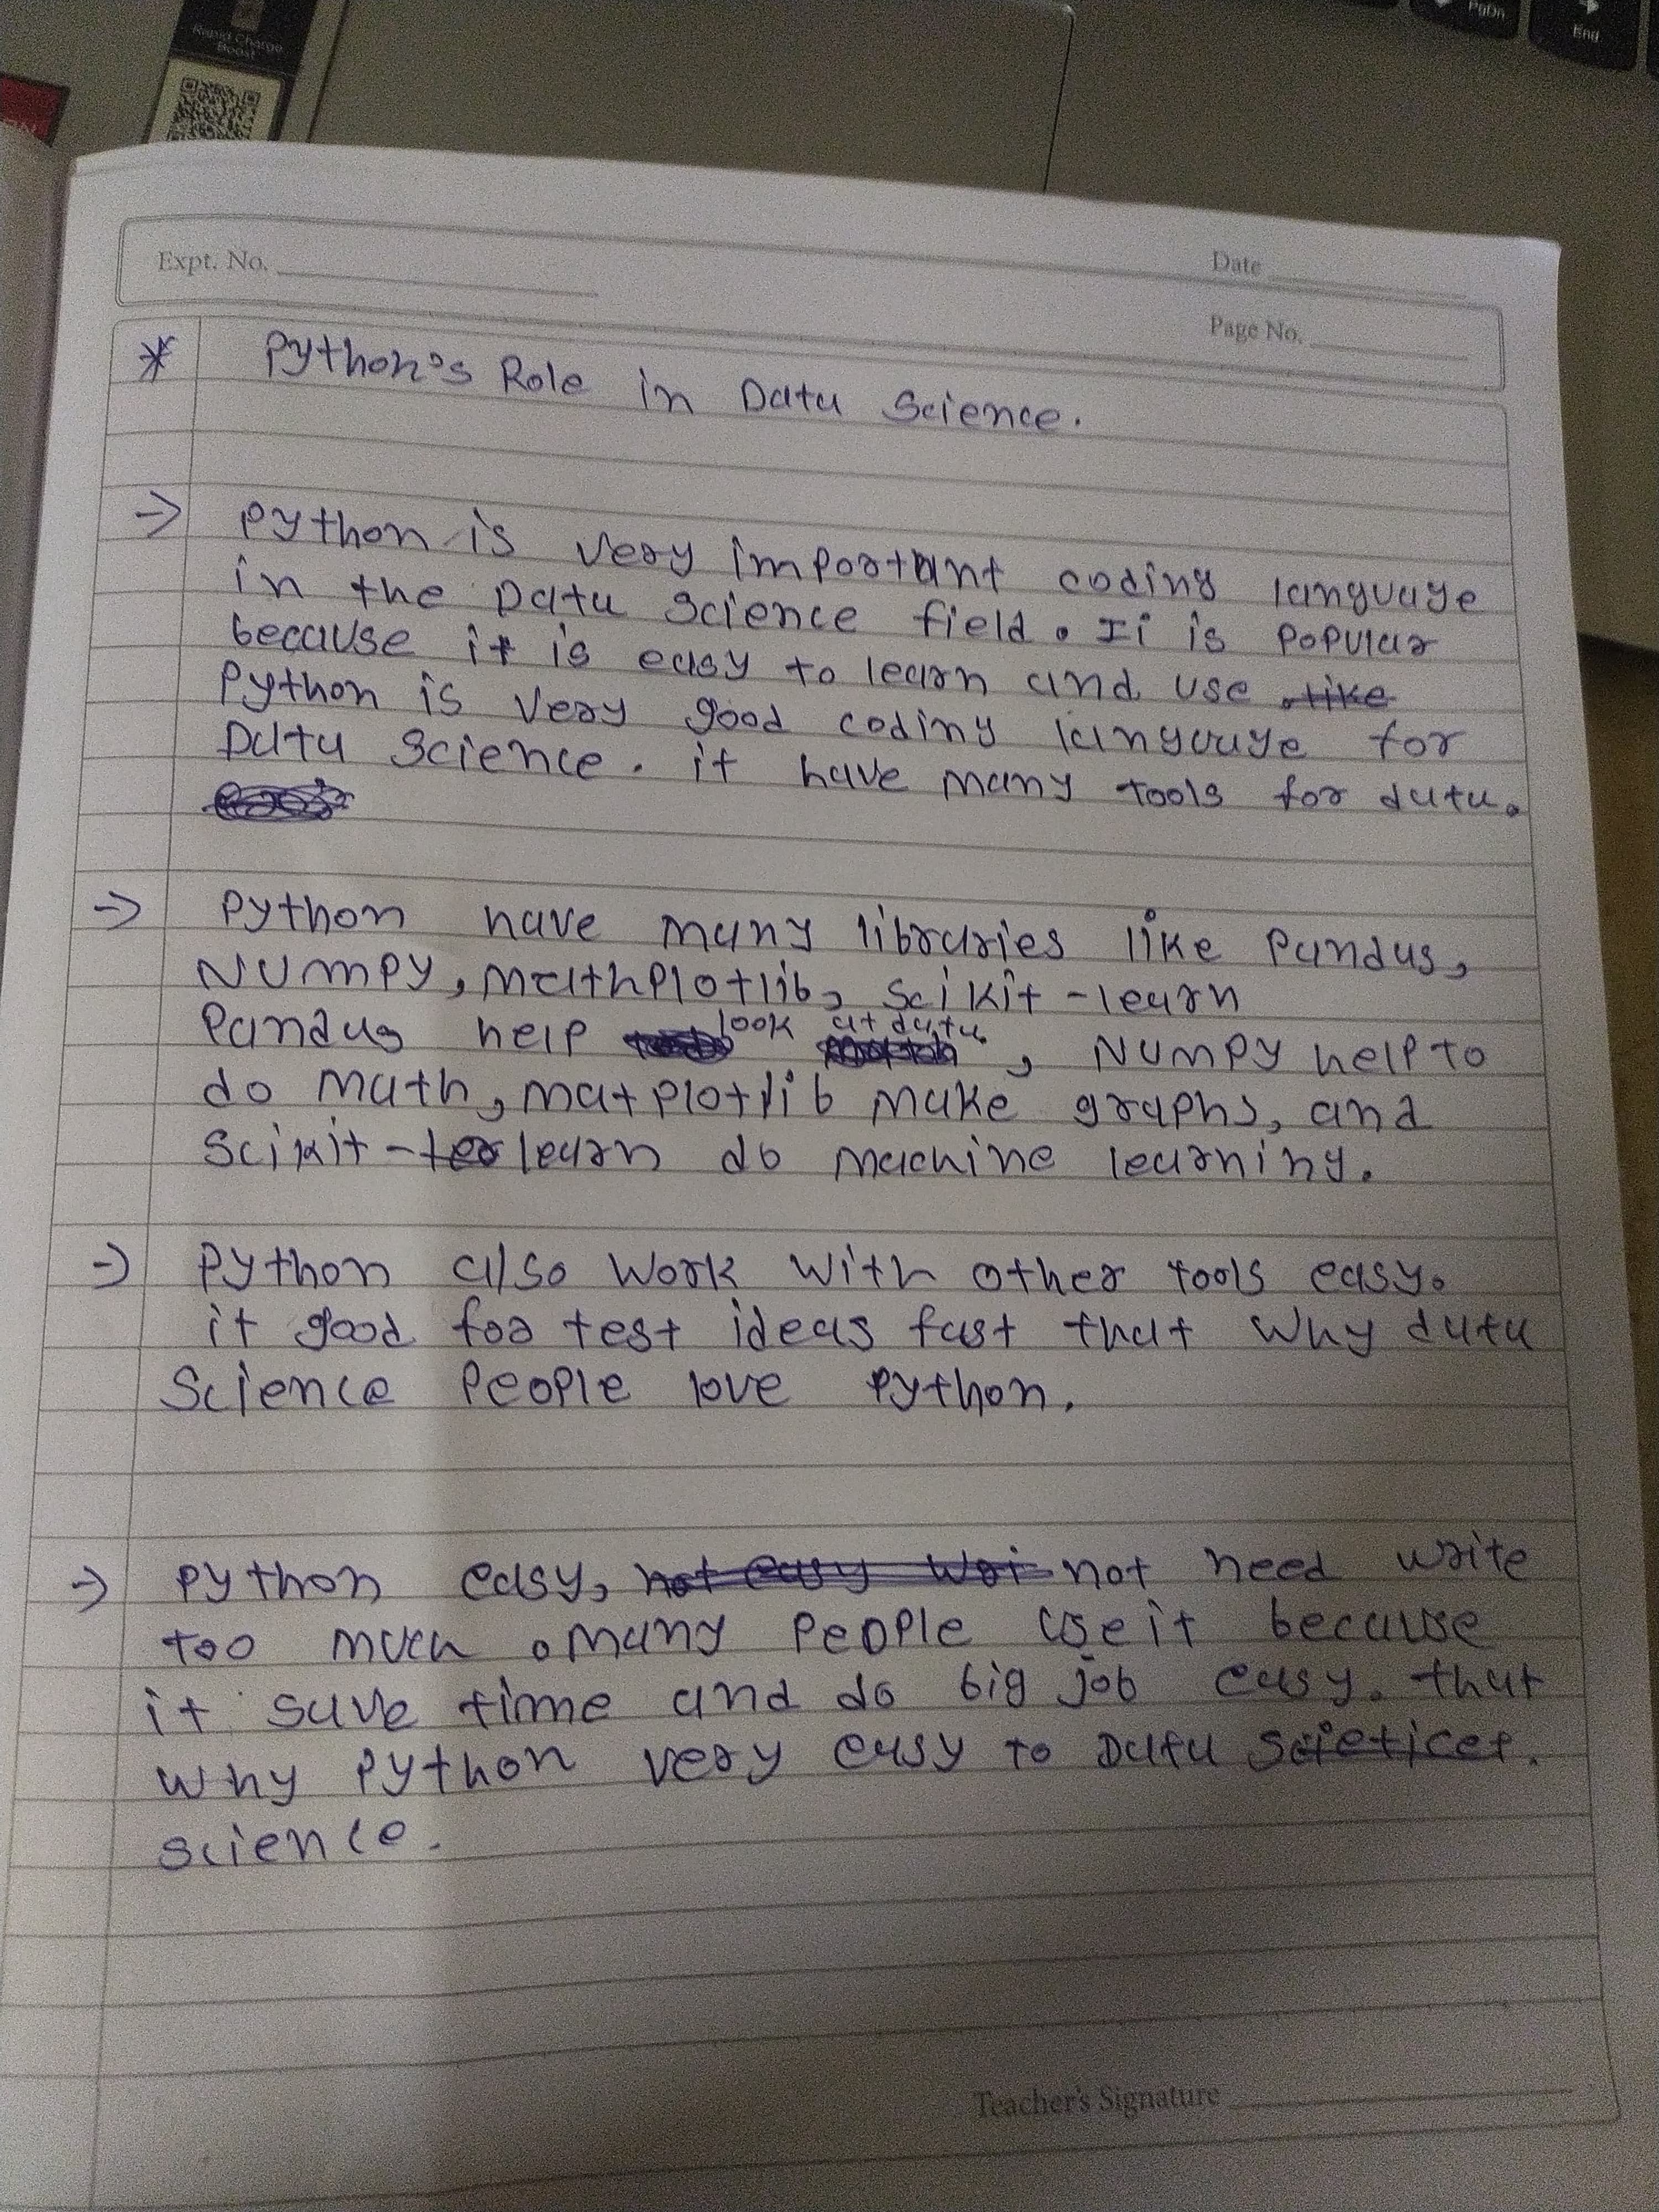 Rapid Charge
Boost
PgDn
End
Expt. No.
Date
Page No.
* Python's Role in Data Science.
-> Python is very important coding language
in the Data Science field. Ii is popular
because it is easy to learn and use like
Python is very good coding language for
Data Science. it have many tools for data.
-> Python have many libraries like Pandas,
NumPy, mathplotlib, scikit-learn
Pandas help look at data, NumPy help to
do math, matplotlib make graphs, and
scikit-lea learn do machine learning.
-> Python also work with other tools easy.
it good for test ideas fast that why data
Science people love python.
-> Python easy, not easy wri not need write
too much. many people use it because
it save time and do big job easy. that
why python very easy to Data scieticet.
science.
Teacher's Signature